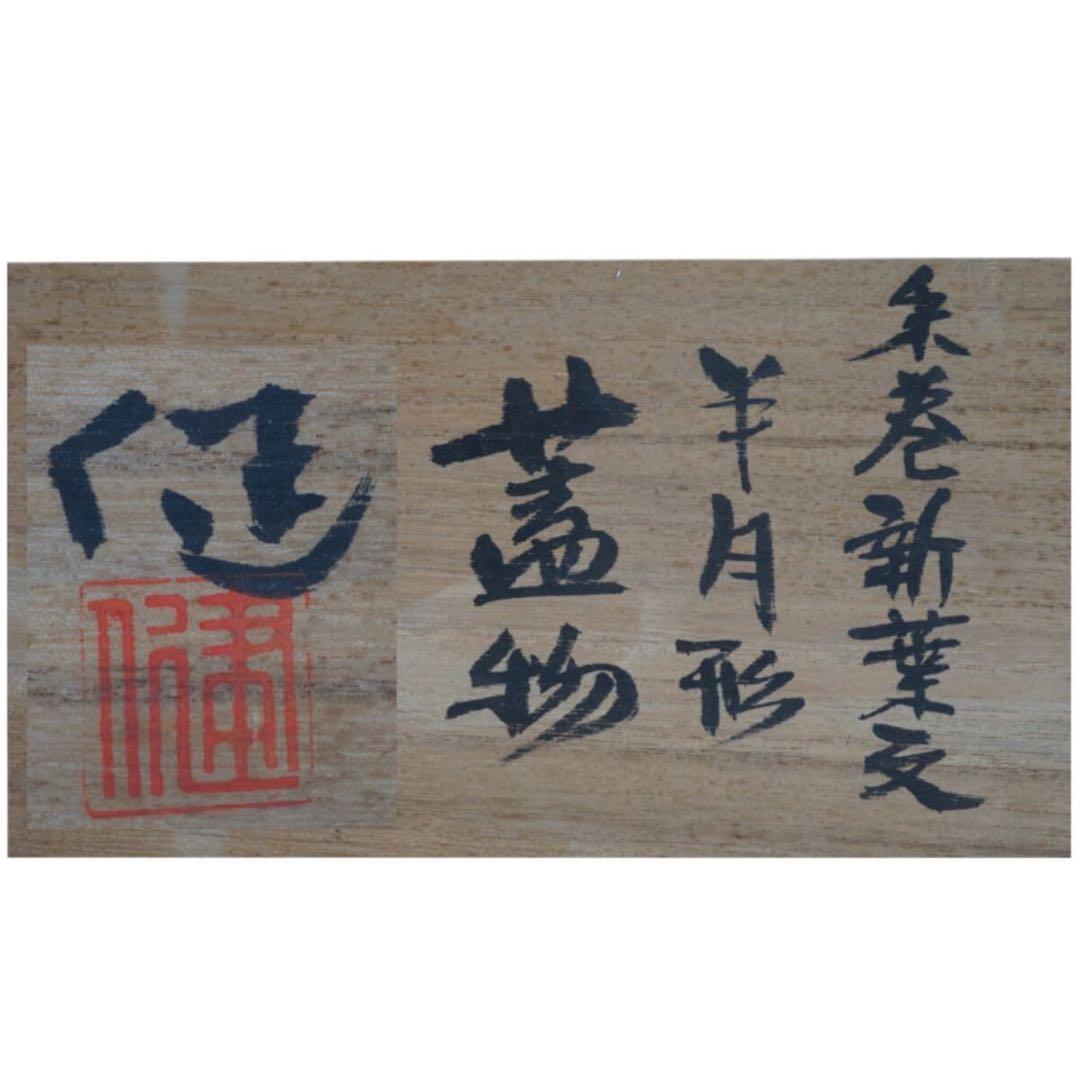 糸巻新葉文
半月形
蓋物
健
健